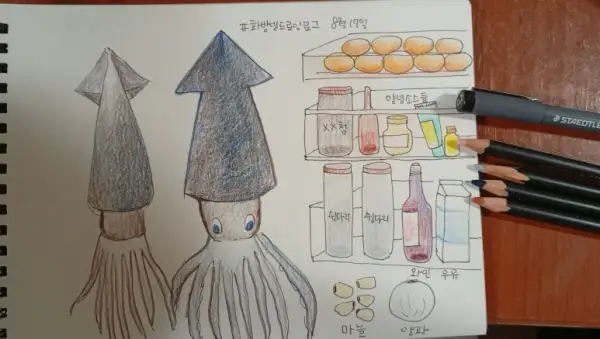 #화방넷드로잉로그 8월 17일
양념소스들
XX청
쉽다리
쉽다리
와인 우유
마늘 양파
STAEDTLER